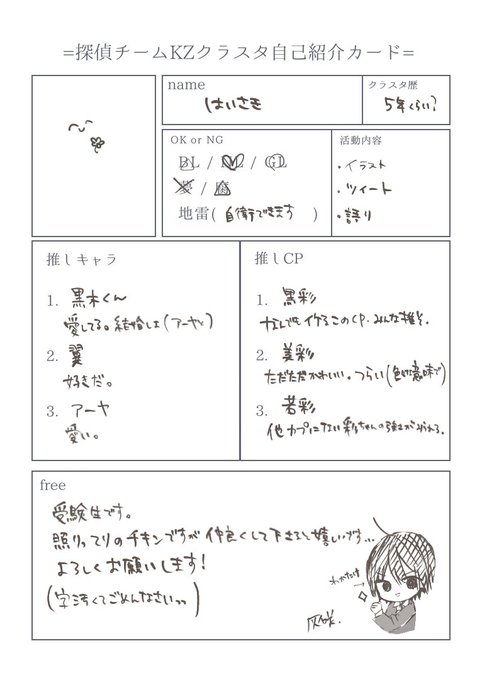 =探偵チームKZクラスタ自己紹介カード=
name
はいさき
クラスタ歴
5年くらい?
OK or NG
BL / NL / GL
夢 / 腐
地雷( 自衛できます )
活動内容
・イラスト
・ツイート
・語り
推しキャラ
1. 黒木くん
愛してる。結婚しよ(アーヤと)
2. 翼
好きだ。
3. アーヤ
愛い。
推しCP
1. 黒彩
なんでもイケるこのCP。みんな推そ。
2. 美彩
ただただかわいい。つらい(色んな意味で)
3. 若彩
他カプにない彩ちゃんの強さがみれる。
free
受験生です。
照りってりのチキンですが仲良くして下さると嬉しいです…
よろしくお願いします!
(字汚くてごめんなさいっっ)
わかたけ
灰咲.